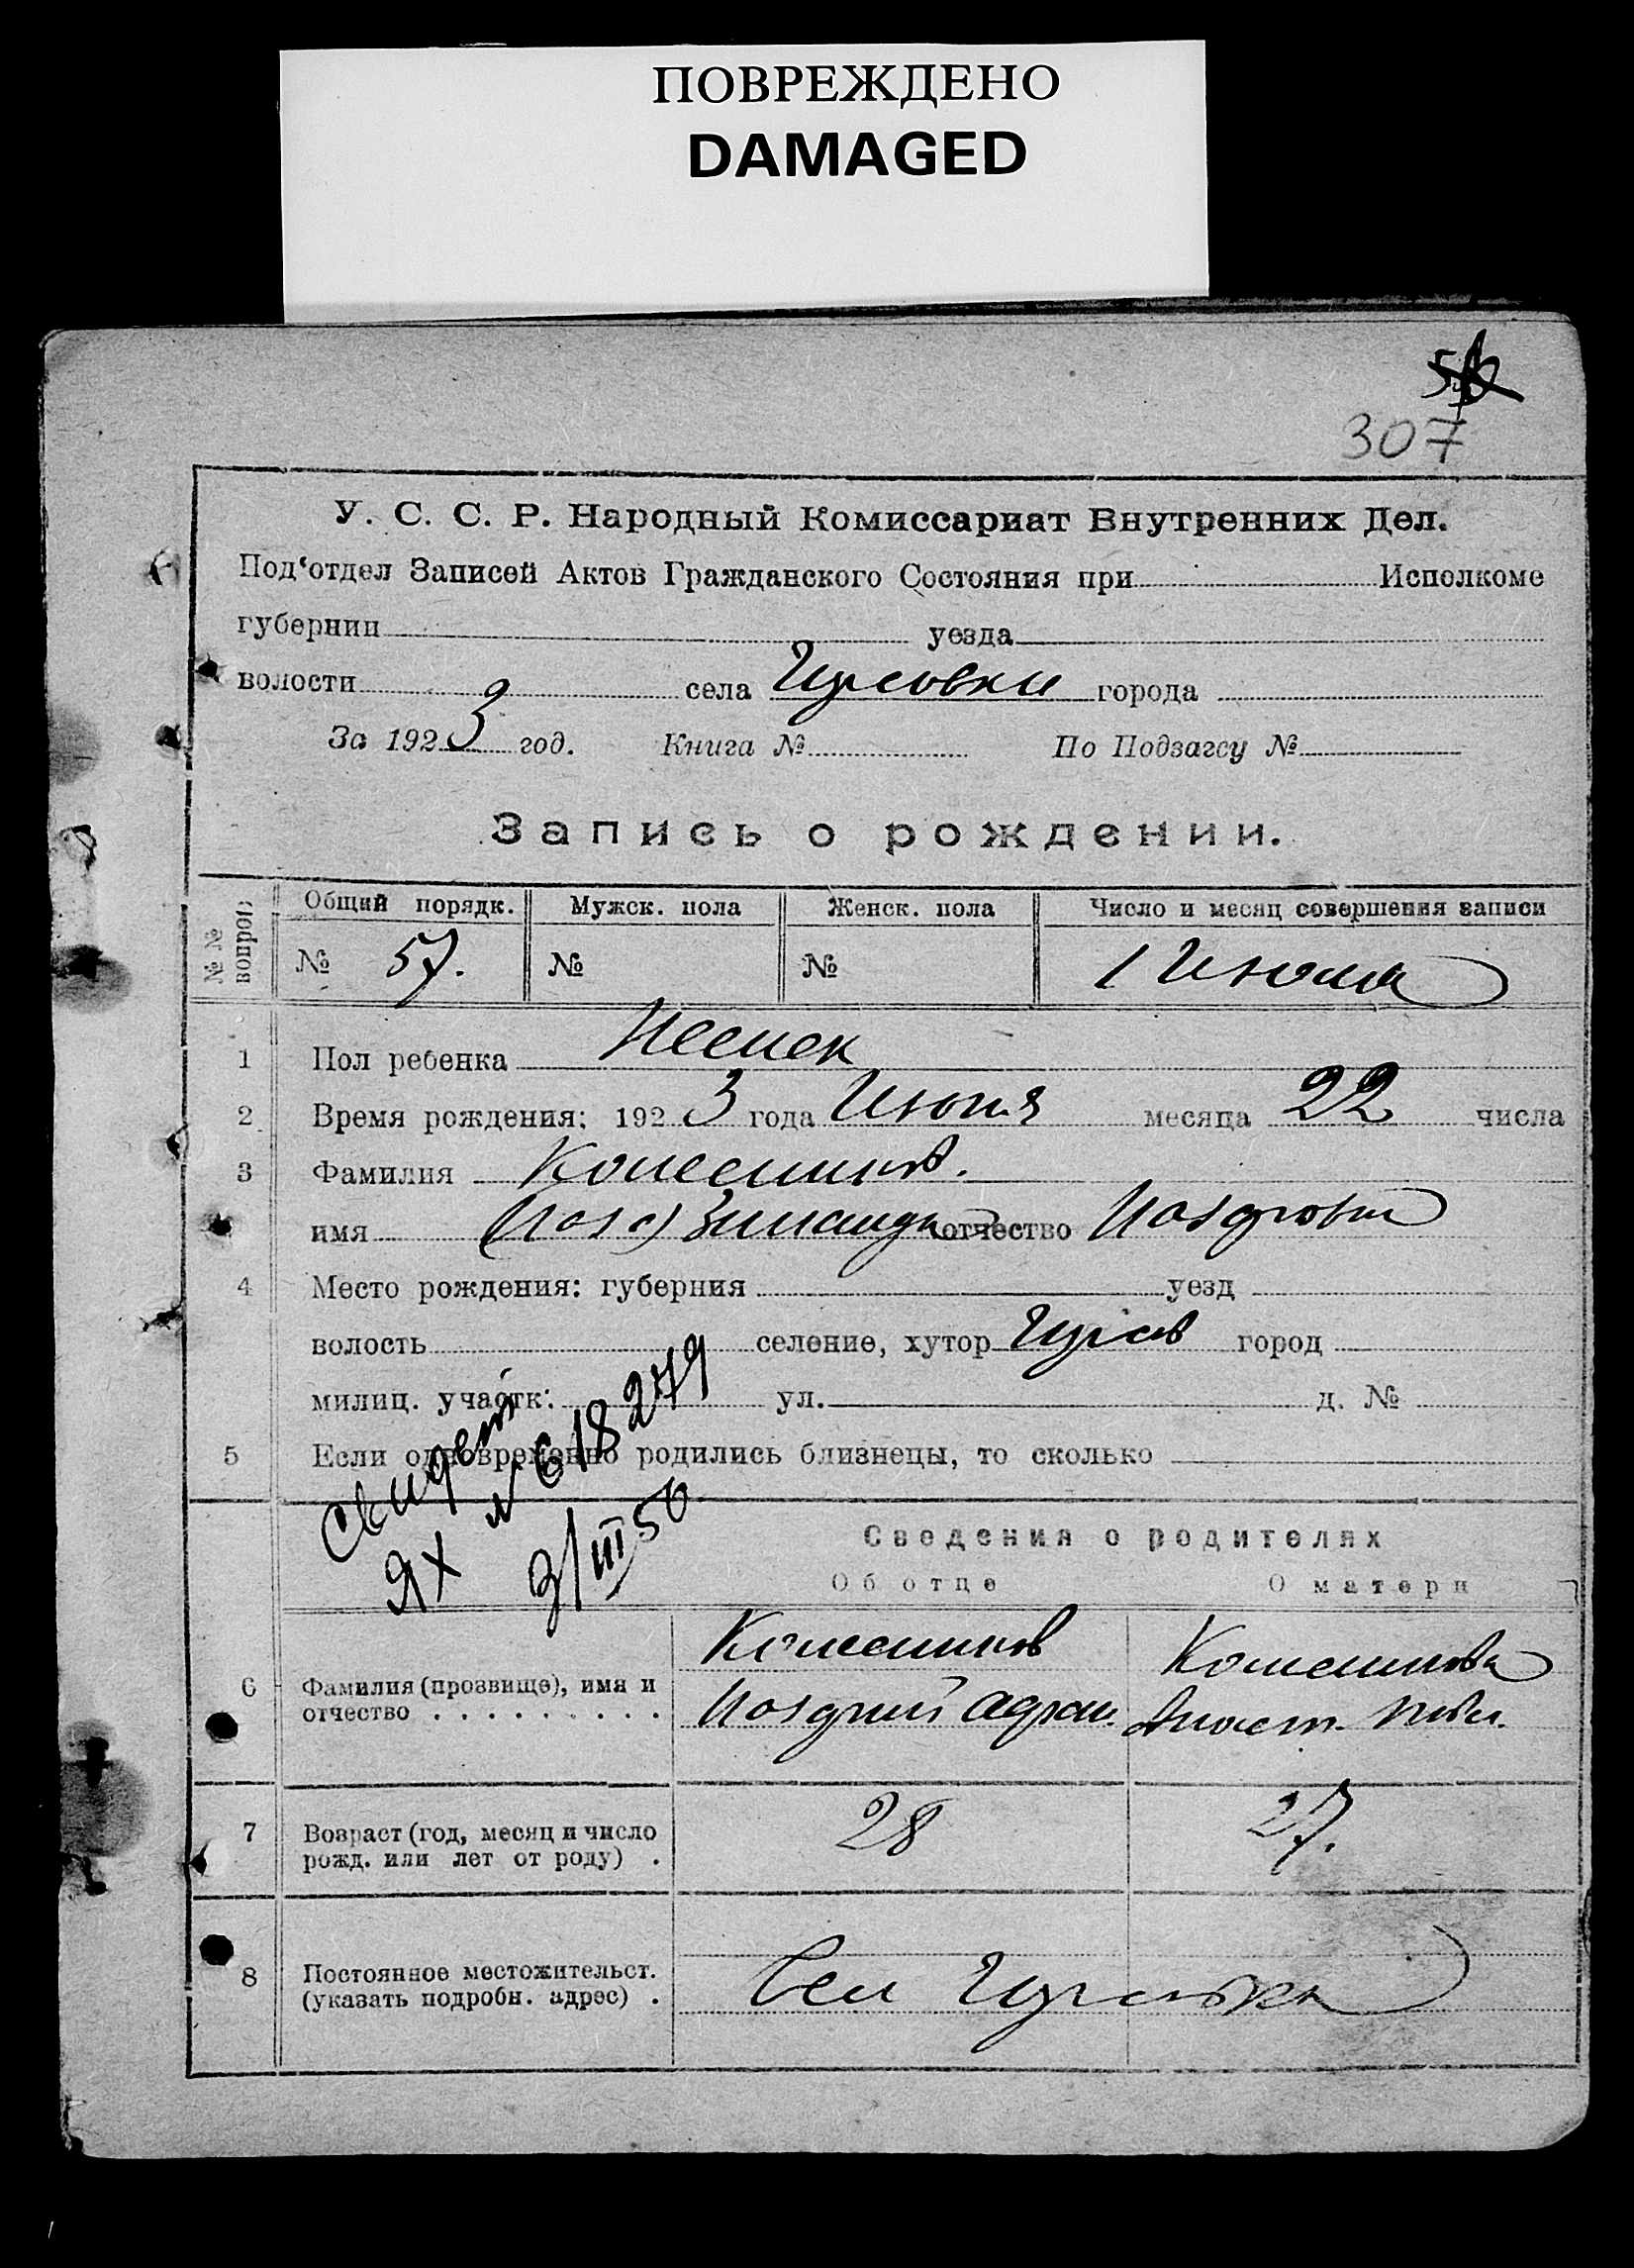 ПОВРЕЖДЕНО
DAMAGED
307
У. С. С. Р. Народный Комиссариат Внутренних Дел.
Под‘отдел Записей Актов Гражданского Состояния при Исполкоме
губернии уезда
волости села города
За 1923 год. Книга № По Подзагсу №
Запись о рождении.
№№ вопрос Общий порядк. Мужск. пола Женск. пола Число и месяц совершения записи
№ 57. № № 1 Июля
1 Пол ребенка
2 Время рождения: 1923 года Июня месяца 22 числа
3 Фамилия Колесников.
имя Зинаида отчество
4 Место рождения: губерния уезд
волость селение, хутор город
милиц. участк: ул. д. №
5 Если одновременно родились близнецы, то сколько
Свидет
ЯХ № 618279
9/III 56
Сведения о родителях
Об отце О матери
6 Фамилия (прозвище), имя и отчество . . . . . . . . .
Колесников Колесникова
7 Возраст (год, месяц и число рожд. или лет от роду) .
28 27.
8 Постоянное местожительст. (указать подробн. адрес) .
Село